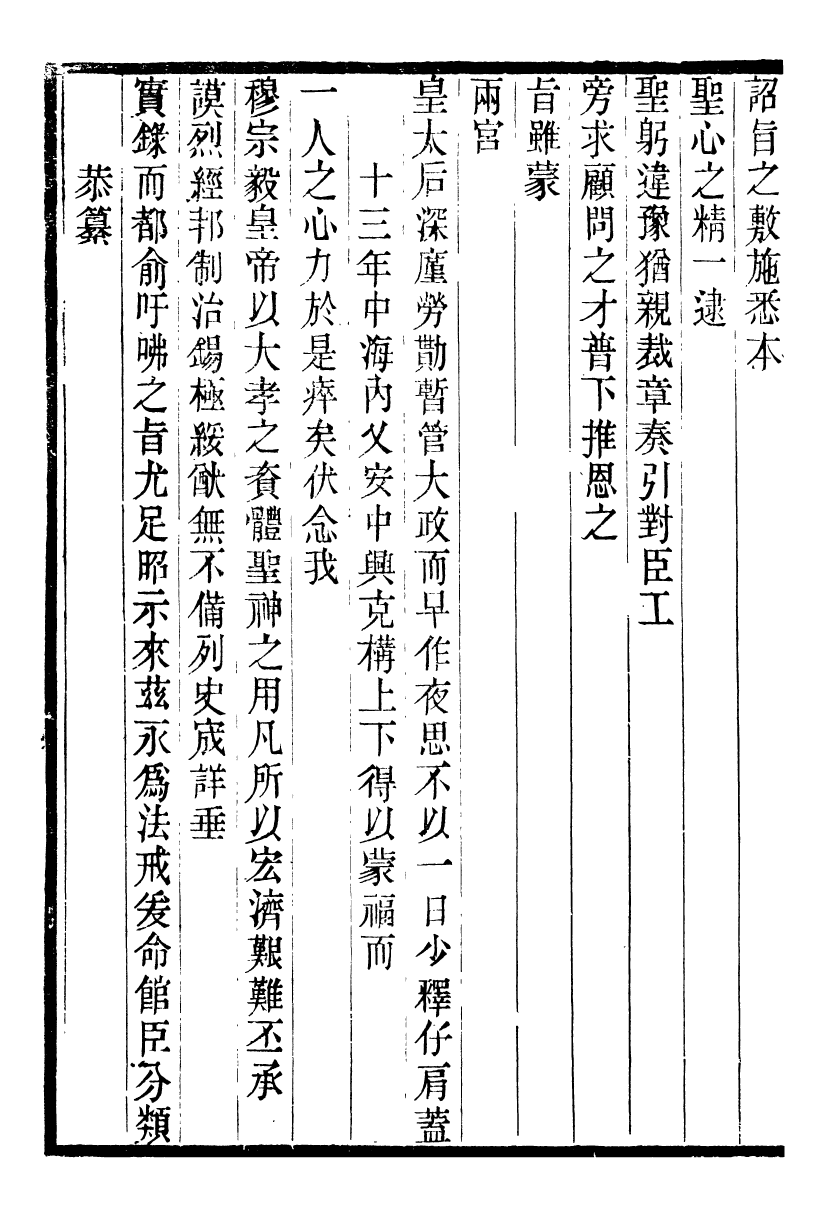 詔旨之敷施悉本
聖心之精一逮
聖躬違豫猶親裁章奏引對臣工
旁求顧問之才普下推恩之
旨雖蒙
兩宮
皇太后深廑勞勩暫管大政而早作夜思不以一日少釋仔肩蓋
十三年中海內乂安中興克構上下得以蒙福而
一人之心力於是瘁矣伏念我
穆宗毅皇帝以大孝之資體聖神之用凡所以宏濟艱難丕承
謨烈經邦制治錫極綏猷無不備列史宬詳垂
實錄而都俞吁咈之旨尤足昭示來茲永爲法戒爰命館臣分類
恭纂